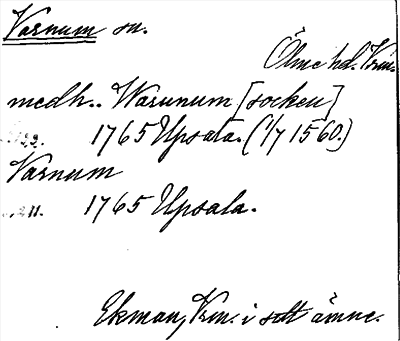 Varnum sn.
Ölme hd. Vrm.
medh.. Warunum [socken]
1765 Upsala. (1/7 1560.)
Varnum
1765 Upsala.
Ekman, Vrm. i sitt ämne.